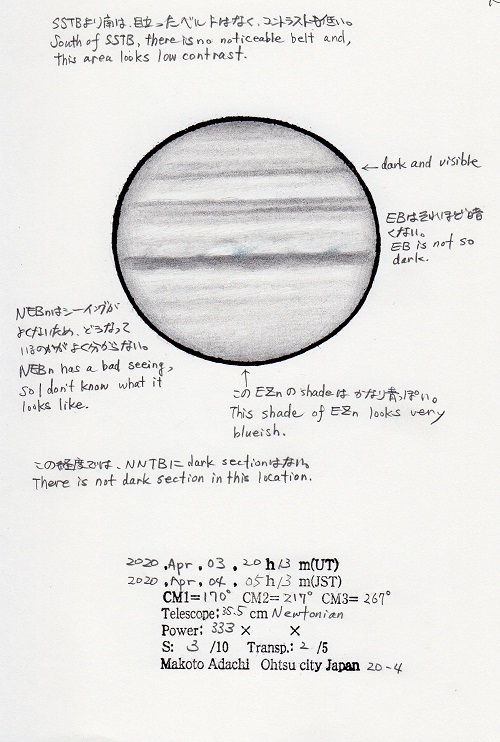 SSTBより南は、目立ったベルトはなく、コントラストも低い。
South of SSTB, there is no noticeable belt and,
this area looks low contrast.
← dark and visible
EBはそれほど暗
くない。
EB is not so
dark.
NEBnはシーイングが
よくないため、どうなって
いるのかがよく分からない。
NEBn has a bad seeing,
so I don't know what it
looks like.
↑
このEZnのshadeはかなり青っぽい。
This shade of EZn looks very
blueish.
この経度では、NNTBにdark sectionはない。
There is not dark section in this location.
2020 .Apr . 03 . 20 h 13 m(UT)
2020 .Apr. 04 . 05 h 13 m(JST)
CM1= 170° CM2= 217° CM3= 267°
Telescope: 35.5 cm Newtonian
Power: 333 × ×
S: 3 /10 Transp.: 2 /5
Makoto Adachi Ohtsu city Japan 20-4